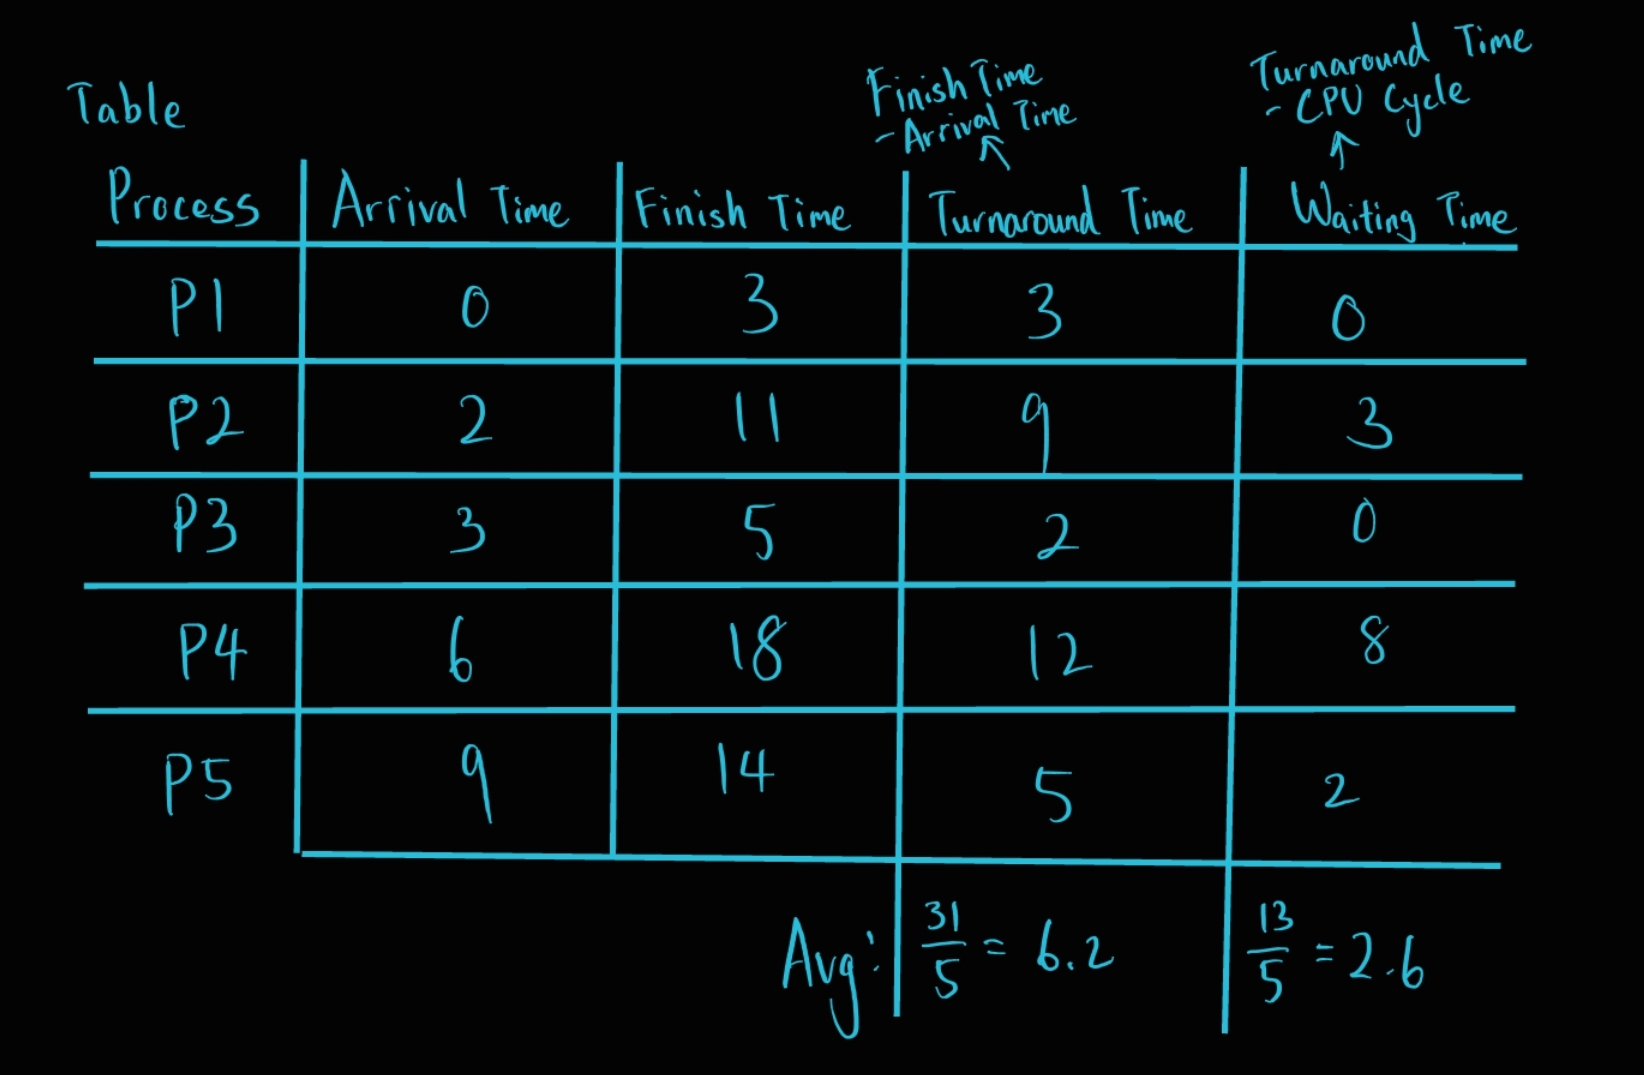 Table
Finish Time
- Arrival Time
Turnaround Time
- CPU Cycle
Process Arrival Time Finish Time Turnaround Time Waiting Time
P1 0 3 3 0
P2 2 11 9 3
P3 3 5 2 0
P4 6 18 12 8
P5 9 14 5 2
Avg: 31/5 = 6.2 13/5 = 2.6